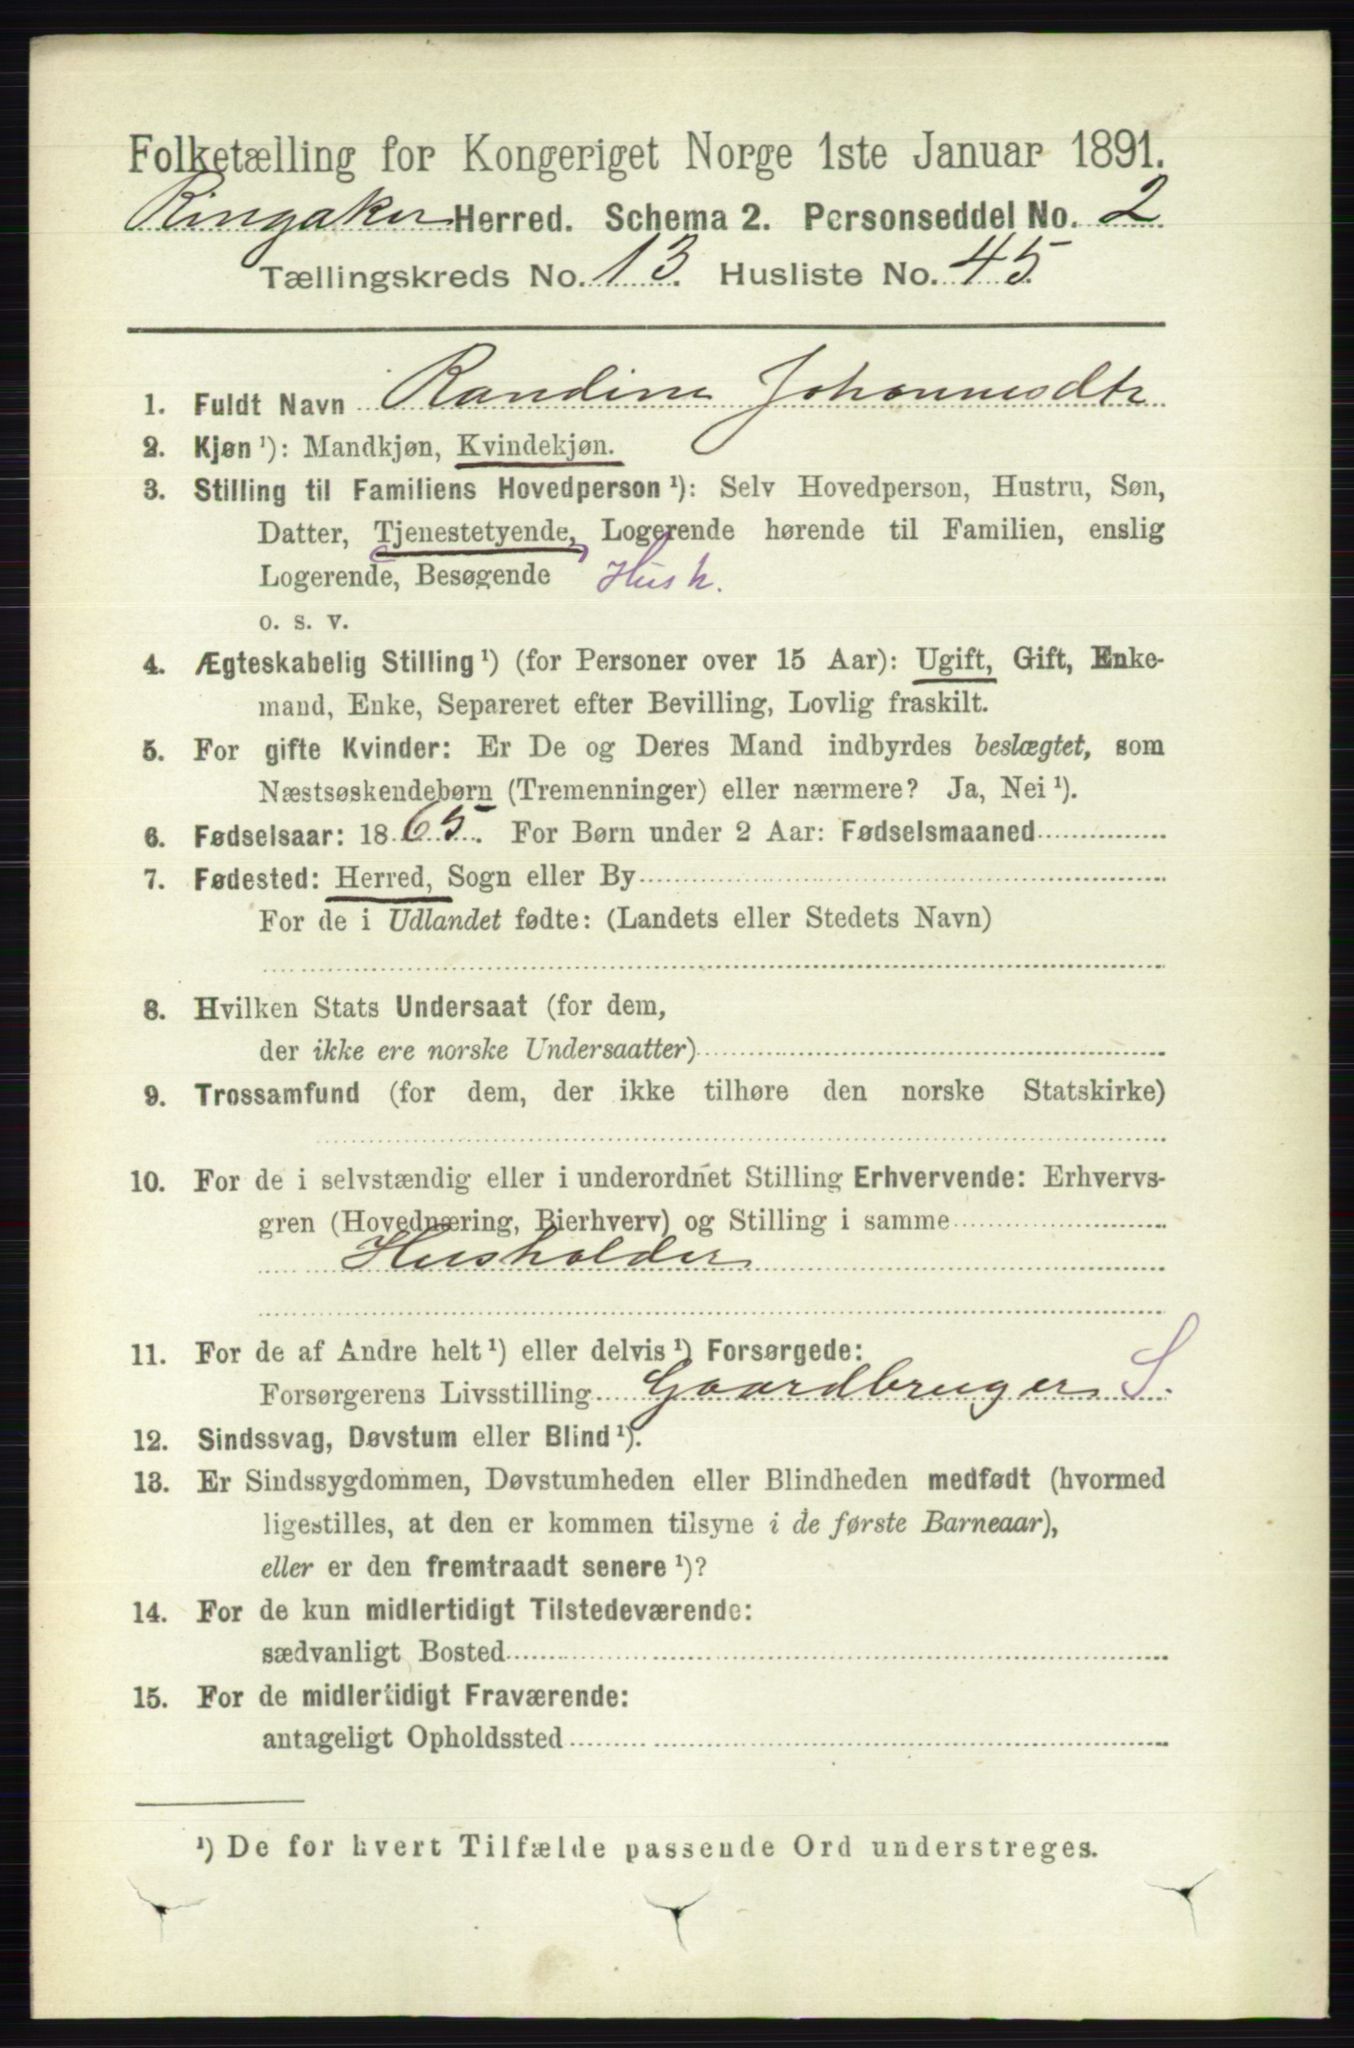 Folketælling for Kongeriget Norge 1ste Januar 1891.
Ringsaker Herred. Schema 2. Personseddel No. 2
Tællingskreds No. 13. Husliste No. 45
1. Fuldt Navn Randine Johannesdtr
2. Kjøn ¹): Mandkjøn, Kvindekjøn.
3. Stilling til Familiens Hovedperson ¹): Selv Hovedperson, Hustru, Søn,
Datter, Tjenestetyende, Logerende hørende til Familien, enslig
Logerende, Besøgende Hush.
o. s. v.
4. Ægteskabelig Stilling ¹) (for Personer over 15 Aar): Ugift, Gift, Enke-
mand, Enke, Separeret efter Bevilling, Lovlig fraskilt.
5. For gifte Kvinder: Er De og Deres Mand indbyrdes beslægtet, som
Næstsøskendebørn (Tremenninger) eller nærmere? Ja, Nei ¹).
6. Fødselsaar: 1865. For Børn under 2 Aar: Fødselsmaaned
7. Fødested: Herred, Sogn eller By
For de i Udlandet fødte: (Landets eller Stedets Navn)
8. Hvilken Stats Undersaat (for dem,
der ikke ere norske Undersaatter)
9. Trossamfund (for dem, der ikke tilhøre den norske Statskirke)
10. For de i selvstændig eller i underordnet Stilling Erhvervende: Erhvervs-
gren (Hovednæring, Bierhverv) og Stilling i samme
Husholder
11. For de af Andre helt ¹) eller delvis ¹) Forsørgede:
Forsørgerens Livsstilling Gaardbruger S.
12. Sindssvag, Døvstum eller Blind ¹).
13. Er Sindssygdommen, Døvstumheden eller Blindheden medfødt (hvormed
ligestilles, at den er kommen tilsyne i de første Barneaar),
eller er den fremtraadt senere ¹)?
14. For de kun midlertidigt Tilstedeværende:
sædvanligt Bosted
15. For de midlertidigt Fraværende:
antageligt Opholdssted
¹) De for hvert Tilfælde passende Ord understreges.